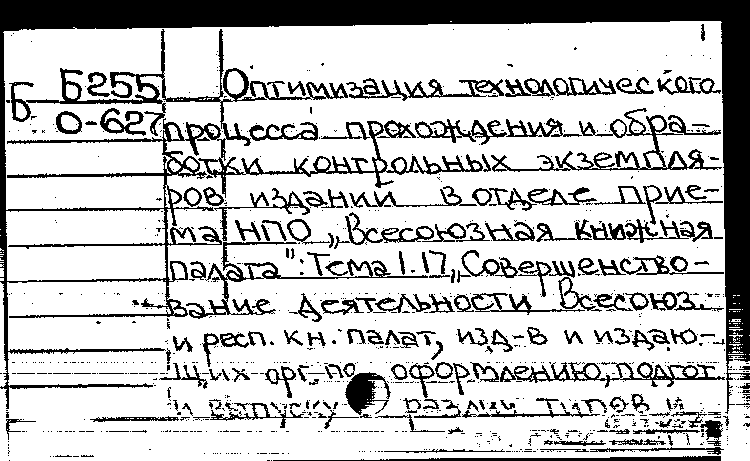 Б Б255 Оптимизация технологического
О-627 процесса прохождения и обра-
ботки контрольных экземпля-
ров изданий в отделе прие-
ма НПО „Всесоюзная книжная
палата": Тема 1.17„Совершенство-
вание деятельности Всесоюз.
и респ. кн. палат, изд-в и издаю-
щих орг. по оформлению, подгот
и выпуску различ типов и